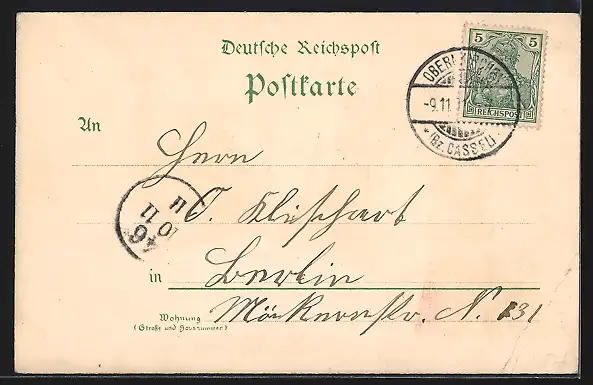 Deutsche Reichspost
Postkarte
5 5
REICHSPOST
-9.11.
* (Bz. CASSEL)
An
Herrn
46
10 11
11
in Berlin
Wohnung
(Straße und Hausnummer)
Möckernstr. N. 131